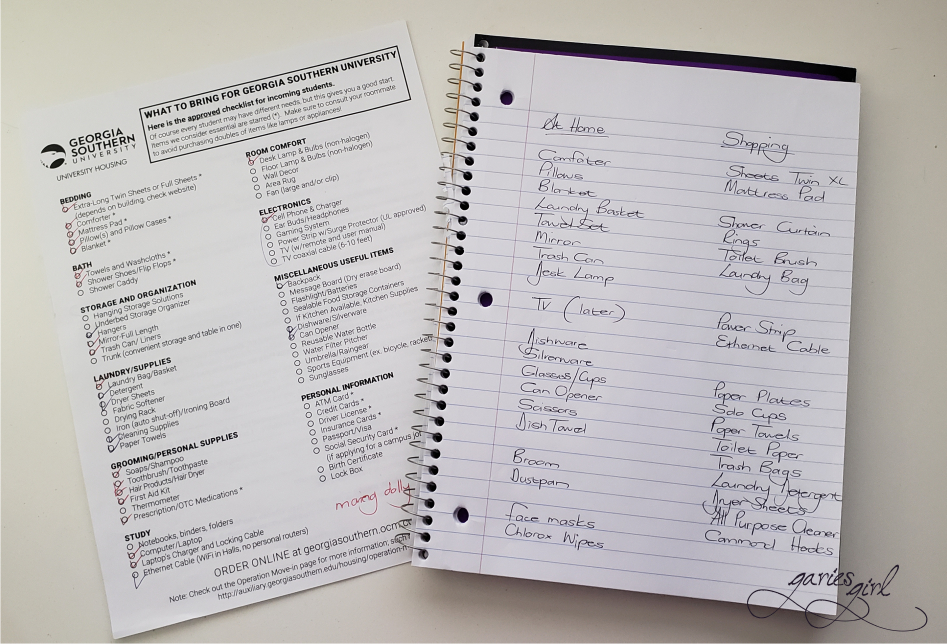 WHAT TO BRING FOR GEORGIA SOUTHERN UNIVERSITY
Here is the approved checklist for incoming students.
Of course every student may have different needs, but this gives you a good start.
Items we consider essential are starred (*). Make sure to consult your roommate
to avoid purchasing doubles of items like lamps or appliances!
GEORGIA
SOUTHERN
UNIVERSITY
UNIVERSITY HOUSING
BEDDING
Extra-Long Twin Sheets or Full Sheets *
(depends on building, check website)
Comforter *
Mattress Pad *
Pillow(s) and Pillow Cases *
Blanket *
BATH
Towels and Washcloths *
Shower Shoes/Flip Flops *
Shower Caddy
STORAGE AND ORGANIZATION
Hanging Storage Solutions
Underbed Storage Organizer
Hangers
Mirror-Full Length
Trash Can/ Liners
Trunk (convenient storage and table in one)
LAUNDRY/SUPPLIES
Laundry Bag/Basket
Detergent
Dryer Sheets
Fabric Softener
Drying Rack
Iron (auto shut-off)/Ironing Board
Cleaning Supplies
Paper Towels
GROOMING/PERSONAL SUPPLIES
Soaps/Shampoo
Toothbrush/Toothpaste
Hair Products/Hair Dryer
First Aid Kit
Thermometer
Prescription/OTC Medications *
STUDY
Notebooks, binders, folders
Computer/Laptop
Laptop's Charger and Locking Cable
Ethernet Cable (WiFi in Halls, no personal routers)
ROOM COMFORT
Desk Lamp & Bulbs (non-halogen)
Floor Lamp & Bulbs (non-halogen)
Wall Decor
Area Rug
Fan (large and/or clip)
ELECTRONICS
Cell Phone & Charger
Ear Buds/Headphones
Gaming System
Power Strip w/Surge Protector (UL approved)
TV (w/remote and user manual)
TV coaxial cable (6-10 feet)
MISCELLANEOUS USEFUL ITEMS
Backpack
Message Board (Dry erase board)
Flashlight/Batteries
Sealable Food Storage Containers
If Kitchen Available, Kitchen Supplies
Dishware/Silverware
Can Opener
Reusable Water Bottle
Water Filter Pitcher
Umbrella/Raingear
Sports Equipment (ex. bicycle, racket
Sunglasses
PERSONAL INFORMATION
ATM Card *
Credit Cards *
Driver License *
Insurance Cards *
Passport/Visa
Social Security Card *
(if applying for a campus jo
Birth Certificate
Lock Box
moving dolly
ORDER ONLINE at georgiasouthern.ocm
Note: Check out the Operation Move-in page for more information, such
http://auxiliary.georgiasouthern.edu/housing/operation-
At Home
Comforter
Pillows
Blanket
Laundry Basket
Towel Set
Mirror
Trash Can
Desk Lamp
TV (later)
Dishware
Silverware
Glasses/Cups
Can Opener
Scissors
Dish Towel
Broom
Dustpan
Face masks
Chlorox Wipes
Shopping
Sheets Twin XL
Mattress Pad
Shower Curtain
Rings
Toilet Brush
Laundry Bag
Power Strip
Ethernet Cable
Paper Plates
Solo Cups
Paper Towels
Toilet Paper
Trash Bags
Laundry Detergent
Dryer Sheets
All Purpose Cleaner
Command Hooks
garies girl